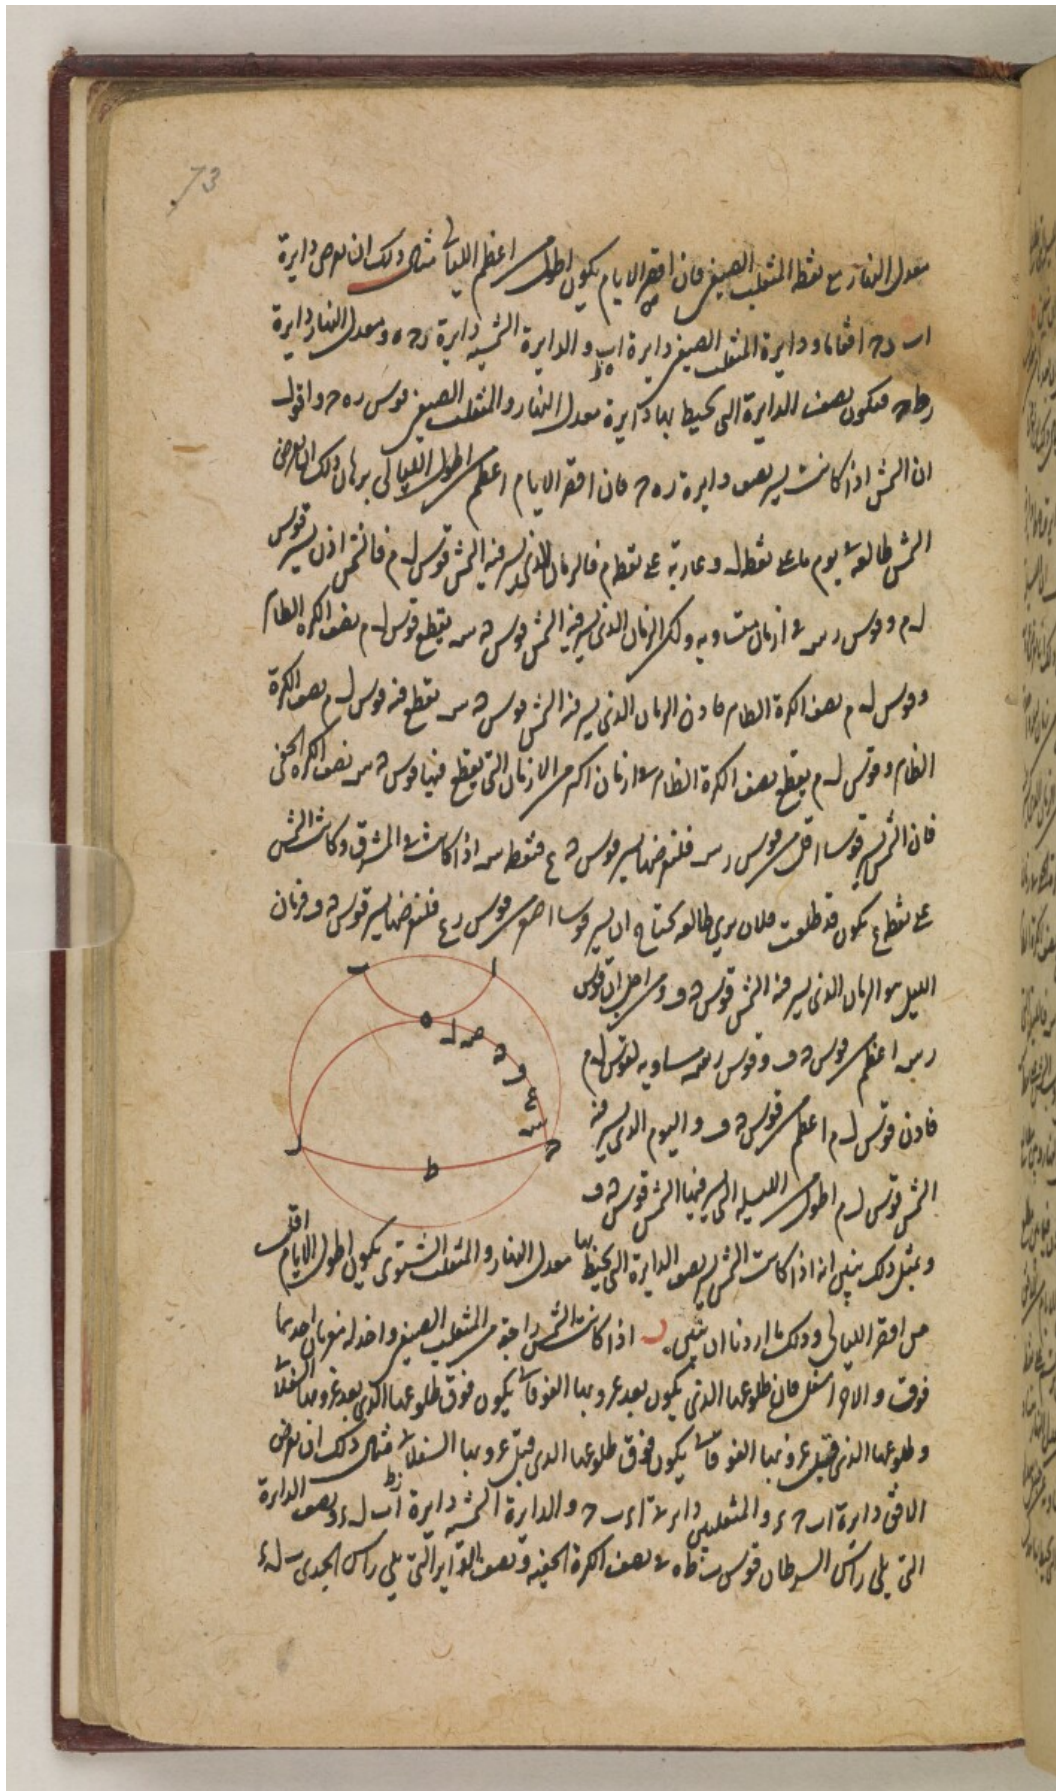 73
معدل النهار على نقطة المنقلب الصيفي فان اقصر الايام يكون اطول من اعظم الليالي مثال ذلك ان نعرض دايرة
اب دح افقا ما و دايرة المنقلب الصيفي دايرة اب و الدايرة الشمسيه دايرة ره ح و معدل النهار دايرة
رطح فيكون نصف الدايرة التي يحيط بها دايرة معدل النهار و المنقلب الصيفي قوس ره ح و اقول
ان الشمس اذا كانت تسير نصف دايرة ره ح فان اقصر الايام اعظم من اطول الليالي برهان ذلك انا نعرض
الشمس طالعه في يوم ما على نقطة ل و غاربة على نقطة م فالزمان الذي تسير فيه الشمس قوس ل م فالشمس اذن تسير قوس
ل م و قوس رس في ازمان متساويه و لكن الزمان الذي تسير فيه الشمس قوس ن س يقطع قوس ل م نصف الكرة الظاهر
و قوس ل م نصف الكرة الظاهر فاذن الزمان الذي تسير فيه الشمس قوس ن س يقطع فيه قوس ل م نصف الكرة
الظاهر و قوس ل م يقطع نصف الكرة الظاهر في ازمان اكثر من الازمان التي يقطع فيها قوس ن س نصف الكرة الخفي
فان الشمس تسير قوسا اقل من قوس رس فلنعرضها تسير قوس ن ع فنقطة س اذا كانت في المشرق و كانت الشمس
على نقطة ع يكون قد طلعت فلان يري طالعه تحتاج ان تسير قوسا اصغر من قوس رع فلنعرضها تسير قوس ن ف فزمان
الليل هو الزمان الذي تسير فيه الشمس قوس ن ف و من اجل ان قوس
رس اعظم من قوس ن ف و قوس رس مساويه لقوس ل م
فاذن قوس ل م اعظم من قوس ن ف و اليوم الذي تسير فيه
الشمس قوس ل م اطول من الليله التي تسير فيها الشمس قوس ن ف
و بمثل ذلك نبين انه اذا كانت الشمس تسير نصف الدايرة التي يحيط بها معدل النهار و المنقلب الشتوي يكون اطول الايام اقل
من اقصر الليالي و ذلك ما اردنا ان نبين اذا كانت الشمس راجعة من المنقلب الصيفي و اخذ لها غروبان احدهما
فوق و الاخر اسفل فان طلوعها الذي يكون بعد غروبها الفوقاني يكون فوق طلوعها الذي بعد غروبها السفلاني
و طلوعها الذي قبل غروبها الفوقاني يكون فوق طلوعها الذي قبل غروبها السفلاني مثال ذلك ان نعرض
الافق دايرة اب ح د و المنقلبين دايرتي اء ب ح و الدايرة الشمسيه دايرة اب ل ء و نصف الدايرة
التي يلي راس السرطان قوس ب زطه في نصف الكرة الخفيه و نصف الدايرة التي يلي راس الجدي ب ل ء
ا
ب
ه
ل
م
ن
ف
ع
س
ح
ر
ط